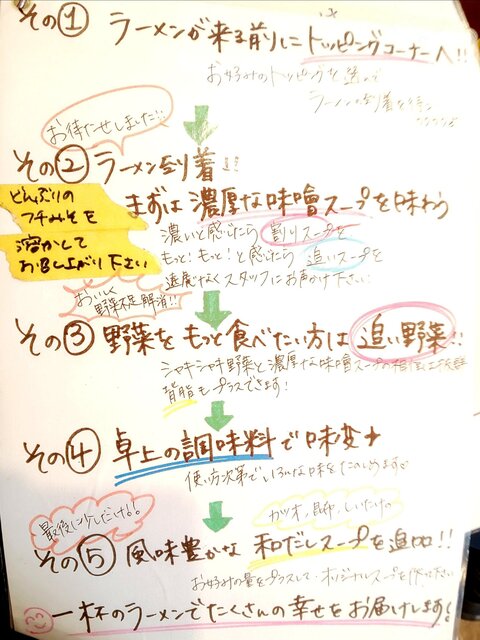 その① ラーメンが来る前にトッピングコーナーへ!!
お好みのトッピングを
ラーメンの到着を待つ
お待たせしました!!
その② ラーメン到着!!
どんぶりの
フチみそを
溶かして
お召し上がり下さい
まずは濃厚な味噌スープを味わう
濃いと感じたら割りスープを
もっと!もっと!と感じたら追いスープを
遠慮なくスタッフにお声かけ下さい
おいしく
野菜不足解消!!
その③ 野菜をもっと食べたい方は追い野菜!!
シャキシャキ野菜と濃厚な味噌スープの相性は抜群
背脂もプラスできます!
その④ 卓上の調味料で味変
使い方次第でいろんな味をたのしめます
最後に少しだけ!!
カツオ、昆布、しいたけの
その⑤ 風味豊かな和だしスープを追加!!
お好みの量をプラスして、オリジナルスープを作って下さい
一杯のラーメンでたくさんの幸せをお届けします!